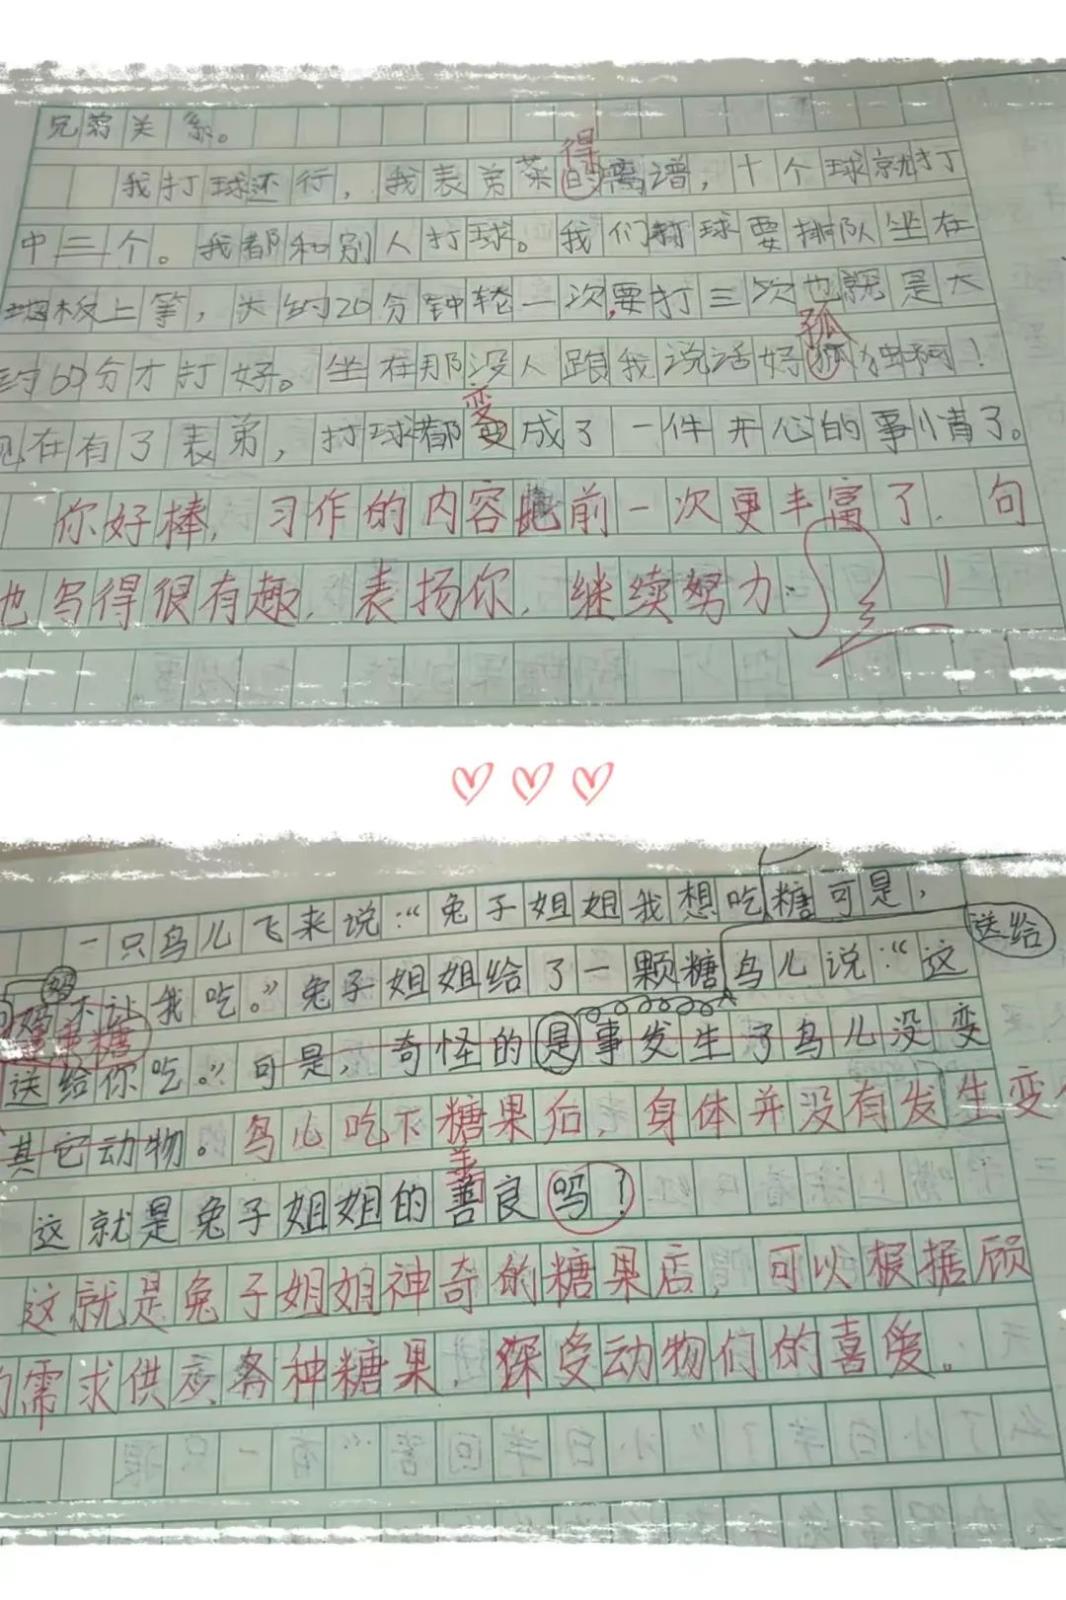 兄弟关系。
得
我打球还行，我表弟菜的离谱，十个球就打
中三个。我都和别人打球。我们打球要排队坐在
地板上等，大约20分钟轮一次，要打三次也就是大
孤
约60分才打好。坐在那没人跟我说话好狐独啊！
变
现在有了表弟，打球都变成了一件开心的事情了。
你好棒，习作的内容比前一次更丰富了，句
也写得很有趣，表扬你，继续努力
一只鸟儿飞来说：“兔子姐姐我想吃糖可是，
送给
妈
妈不让我吃。”兔子姐姐给了一颗糖鸟儿说：“这
糖
送给你吃。”可是，奇怪的是事发生了鸟儿没变
其它动物。鸟儿吃下糖果后，身体并没有发生变
这就是兔子姐姐的善良吗？
这就是兔子姐姐神奇的糖果店，可以根据顾
的需求供应各种糖果，深受动物们的喜爱。